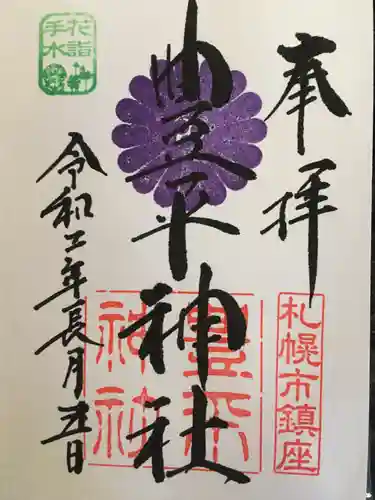 奉拝
札幌市鎮座
豐平神社
豊平
神社
花詣
手水
令和年長月日